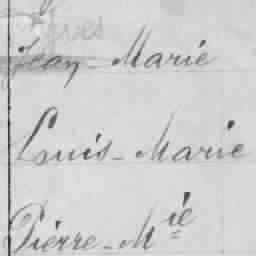 Yves
Jean-Marie
Louis-Marie
Pierre-Mie